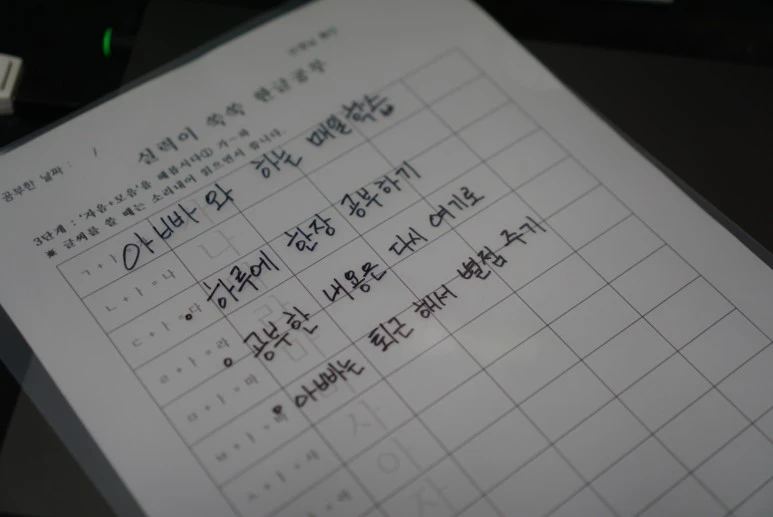 실력이 쑥쑥 한글공부
공부한 날짜 : /
3단계 : '자음+모음'을 배웁시다① 가~하
※ 글씨를 쓸 때는 소리내어 읽으면서 씁니다.
아빠와 하는 매일학습
하루에 한장 공부하기
공부한 내용은 다시 여기로
아빠는 퇴근 해서 별점 주기
ㄱ+ㅏ
ㄴ+ㅏ=나
나
ㄷ+ㅏ=다
ㄹ+ㅏ=라
라
ㅁ+ㅏ=마
마
ㅂ+ㅏ=
ㅅ+ㅏ=사
사
아
자